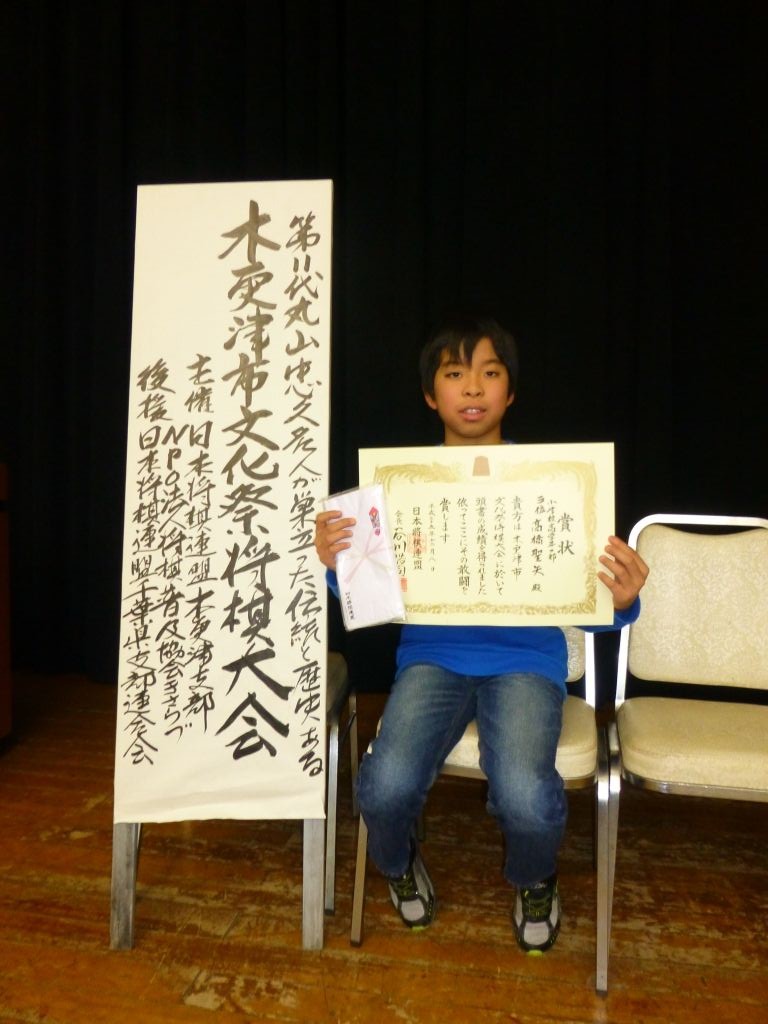 第11代丸山忠久名人が巣立った伝統と歴史ある
木更津市文化祭将棋大会
主催 日本将棋連盟木更津支部
NPO法人将棋普及協会きさらづ
後援 日本将棋連盟千葉県支部連合会
賞状
小学校高学年の部
高橋聖矢殿
貴方は木更津市
文化祭将棋大会に於いて
頭書の成績を得られました
依ってここにその敢闘を
賞します
日本将棋連盟
会長